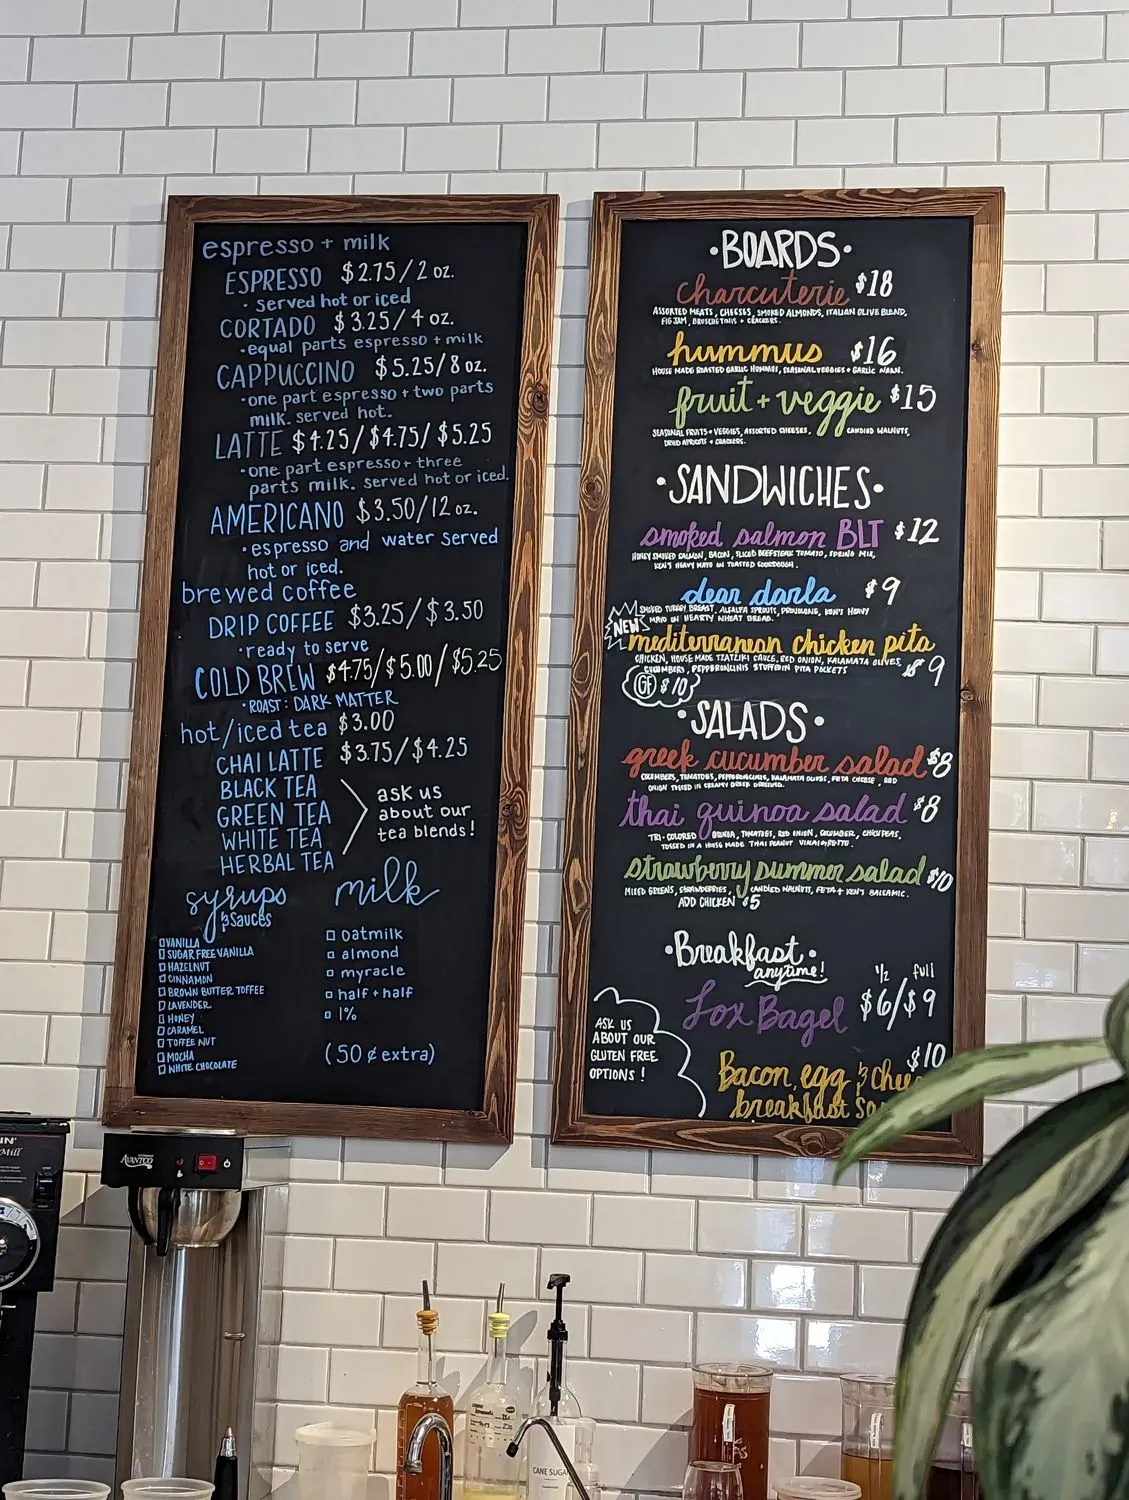 espresso + milk
ESPRESSO $2.75/2 oz.
· served hot or iced
CORTADO $3.25/4 oz.
· equal parts espresso + milk
CAPPUCCINO $5.25/8 oz.
· one part espresso + two parts
milk. served hot.
LATTE $4.25/$4.75/$5.25
· one part espresso + three
parts milk. served hot or iced.
AMERICANO $3.50/12 oz.
· espresso and water served
hot or iced.
brewed coffee
DRIP COFFEE $3.25/$3.50
· ready to serve
COLD BREW $4.75/$5.00/$5.25
· ROAST: DARK MATTER
hot/iced tea $3.00
CHAI LATTE $3.75/$4.25
BLACK TEA
GREEN TEA
WHITE TEA
HERBAL TEA
ask us
about our
tea blends!
syrups
& Sauces
VANILLA
SUGAR FREE VANILLA
HAZELNUT
CINNAMON
BROWN BUTTER TOFFEE
LAVENDER
HONEY
CARAMEL
TOFFEE NUT
MOCHA
WHITE CHOCOLATE
milk
oatmilk
almond
myracle
half + half
1%
(50¢ extra)
·BOARDS·
charcuterie $18
ASSORTED MEATS, CHEESES, SMOKED ALMONDS, ITALIAN OLIVE BLEND,
FIG JAM, BRUSCHETTINIS + CRACKERS.
hummus $16
HOUSE MADE ROASTED GARLIC HUMMUS, SEASONAL VEGGIES + GARLIC NAAN.
fruit + veggie $15
SEASONAL FRUITS + VEGGIES, ASSORTED CHEESES, CANDIED WALNUTS,
DRIED APRICOTS + CRACKERS.
·SANDWICHES·
smoked salmon BLT $12
HONEY SMOKED SALMON, BACON, SLICED BEEFSTEAK TOMATO, SPRING MIX,
KEN'S HEAVY MAYO ON TOASTED SOURDOUGH.
dear darla $9
SMOKED TURKEY BREAST, ALFALFA SPROUTS, PROVOLONE, KEN'S HEAVY
MAYO ON HEARTY WHEAT BREAD.
NEW
mediterranean chicken pita
CHICKEN, HOUSE MADE TZATZIKI SAUCE, RED ONION, KALAMATA OLIVES,
CUCUMBERS, PEPPERONCINIS STUFFED IN PITA POCKETS $9
GF $10
·SALADS·
greek cucumber salad $8
CUCUMBERS, TOMATOES, PEPPERONCINIS, KALAMATA OLIVES, FETA CHEESE, RED
ONION TOSSED IN CREAMY GREEK DRESSING.
thai quinoa salad $8
TRI-COLORED QUINOA, TOMATOES, RED ONION, CUCUMBER, CHICKPEAS,
TOSSED IN A HOUSE MADE THAI PEANUT VINAIGRETTE.
strawberry summer salad $10
MIXED GREENS, STRAWBERRIES, CANDIED WALNUTS, FETA + KEN'S BALSAMIC.
ADD CHICKEN $5
·Breakfast·
anytime!
1/2 full
Lox Bagel $6/$9
ASK US
ABOUT OUR
GLUTEN FREE
OPTIONS!
$10
Bacon, egg, &
breakfast
AVANTCO
CANE SUGAR